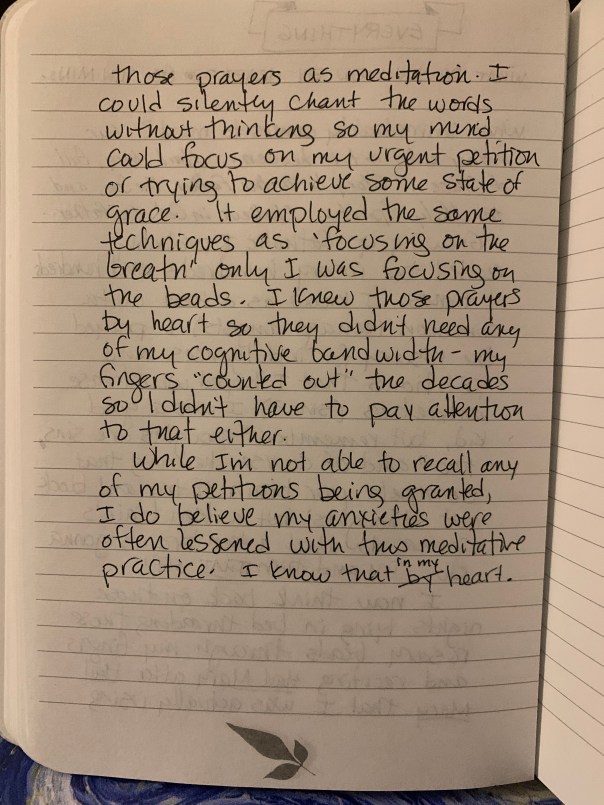 those prayers as meditation. I
could silently chant the words
without thinking so my mind
could focus on my urgent petition
or trying to achieve some state of
grace. It employed the same
techniques as "focusing on the
breath" only I was focusing on
the beads. I knew those prayers
by heart so they didn't need any
of my cognitive bandwidth - my
fingers "counted out" the decades
so I didn't have to pay attention
to that either.
While I'm not able to recall any
of my petitions being granted,
I do believe my anxieties were
often lessened with this meditative
in my
practice. I know that by heart.